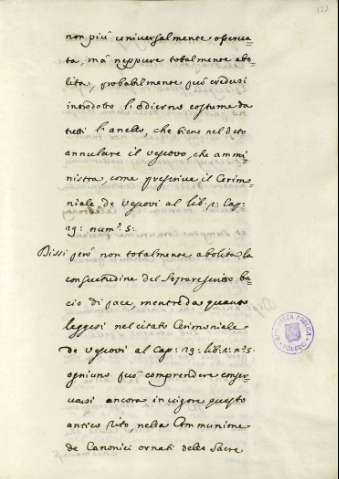 non più universalmente osserva=
ta, mà neppure totalmente abo=
lita, probabilmente può credersi
introdotto l'odierno costume da
tutti l'anello, che tiene nel deto
annulare il vescovo, che ammi=
nistra, come prescrive il Cerimo=
niale de vescovi al lib: 1: Cap:
29: num.º 5:
Dissi però non totalmente abolita la
consuetudine del Sopraresento ba=
cio di pace, mentre da quanto
leggesi nel citato Cerimoniale
de vescovi al Cap: 29: lib: 1: nº 5:
ogniuno può comprendere conser=
varsi ancora in vigore questo
antico Rito, nella Comunione
de Canonici ornati delle Sacre